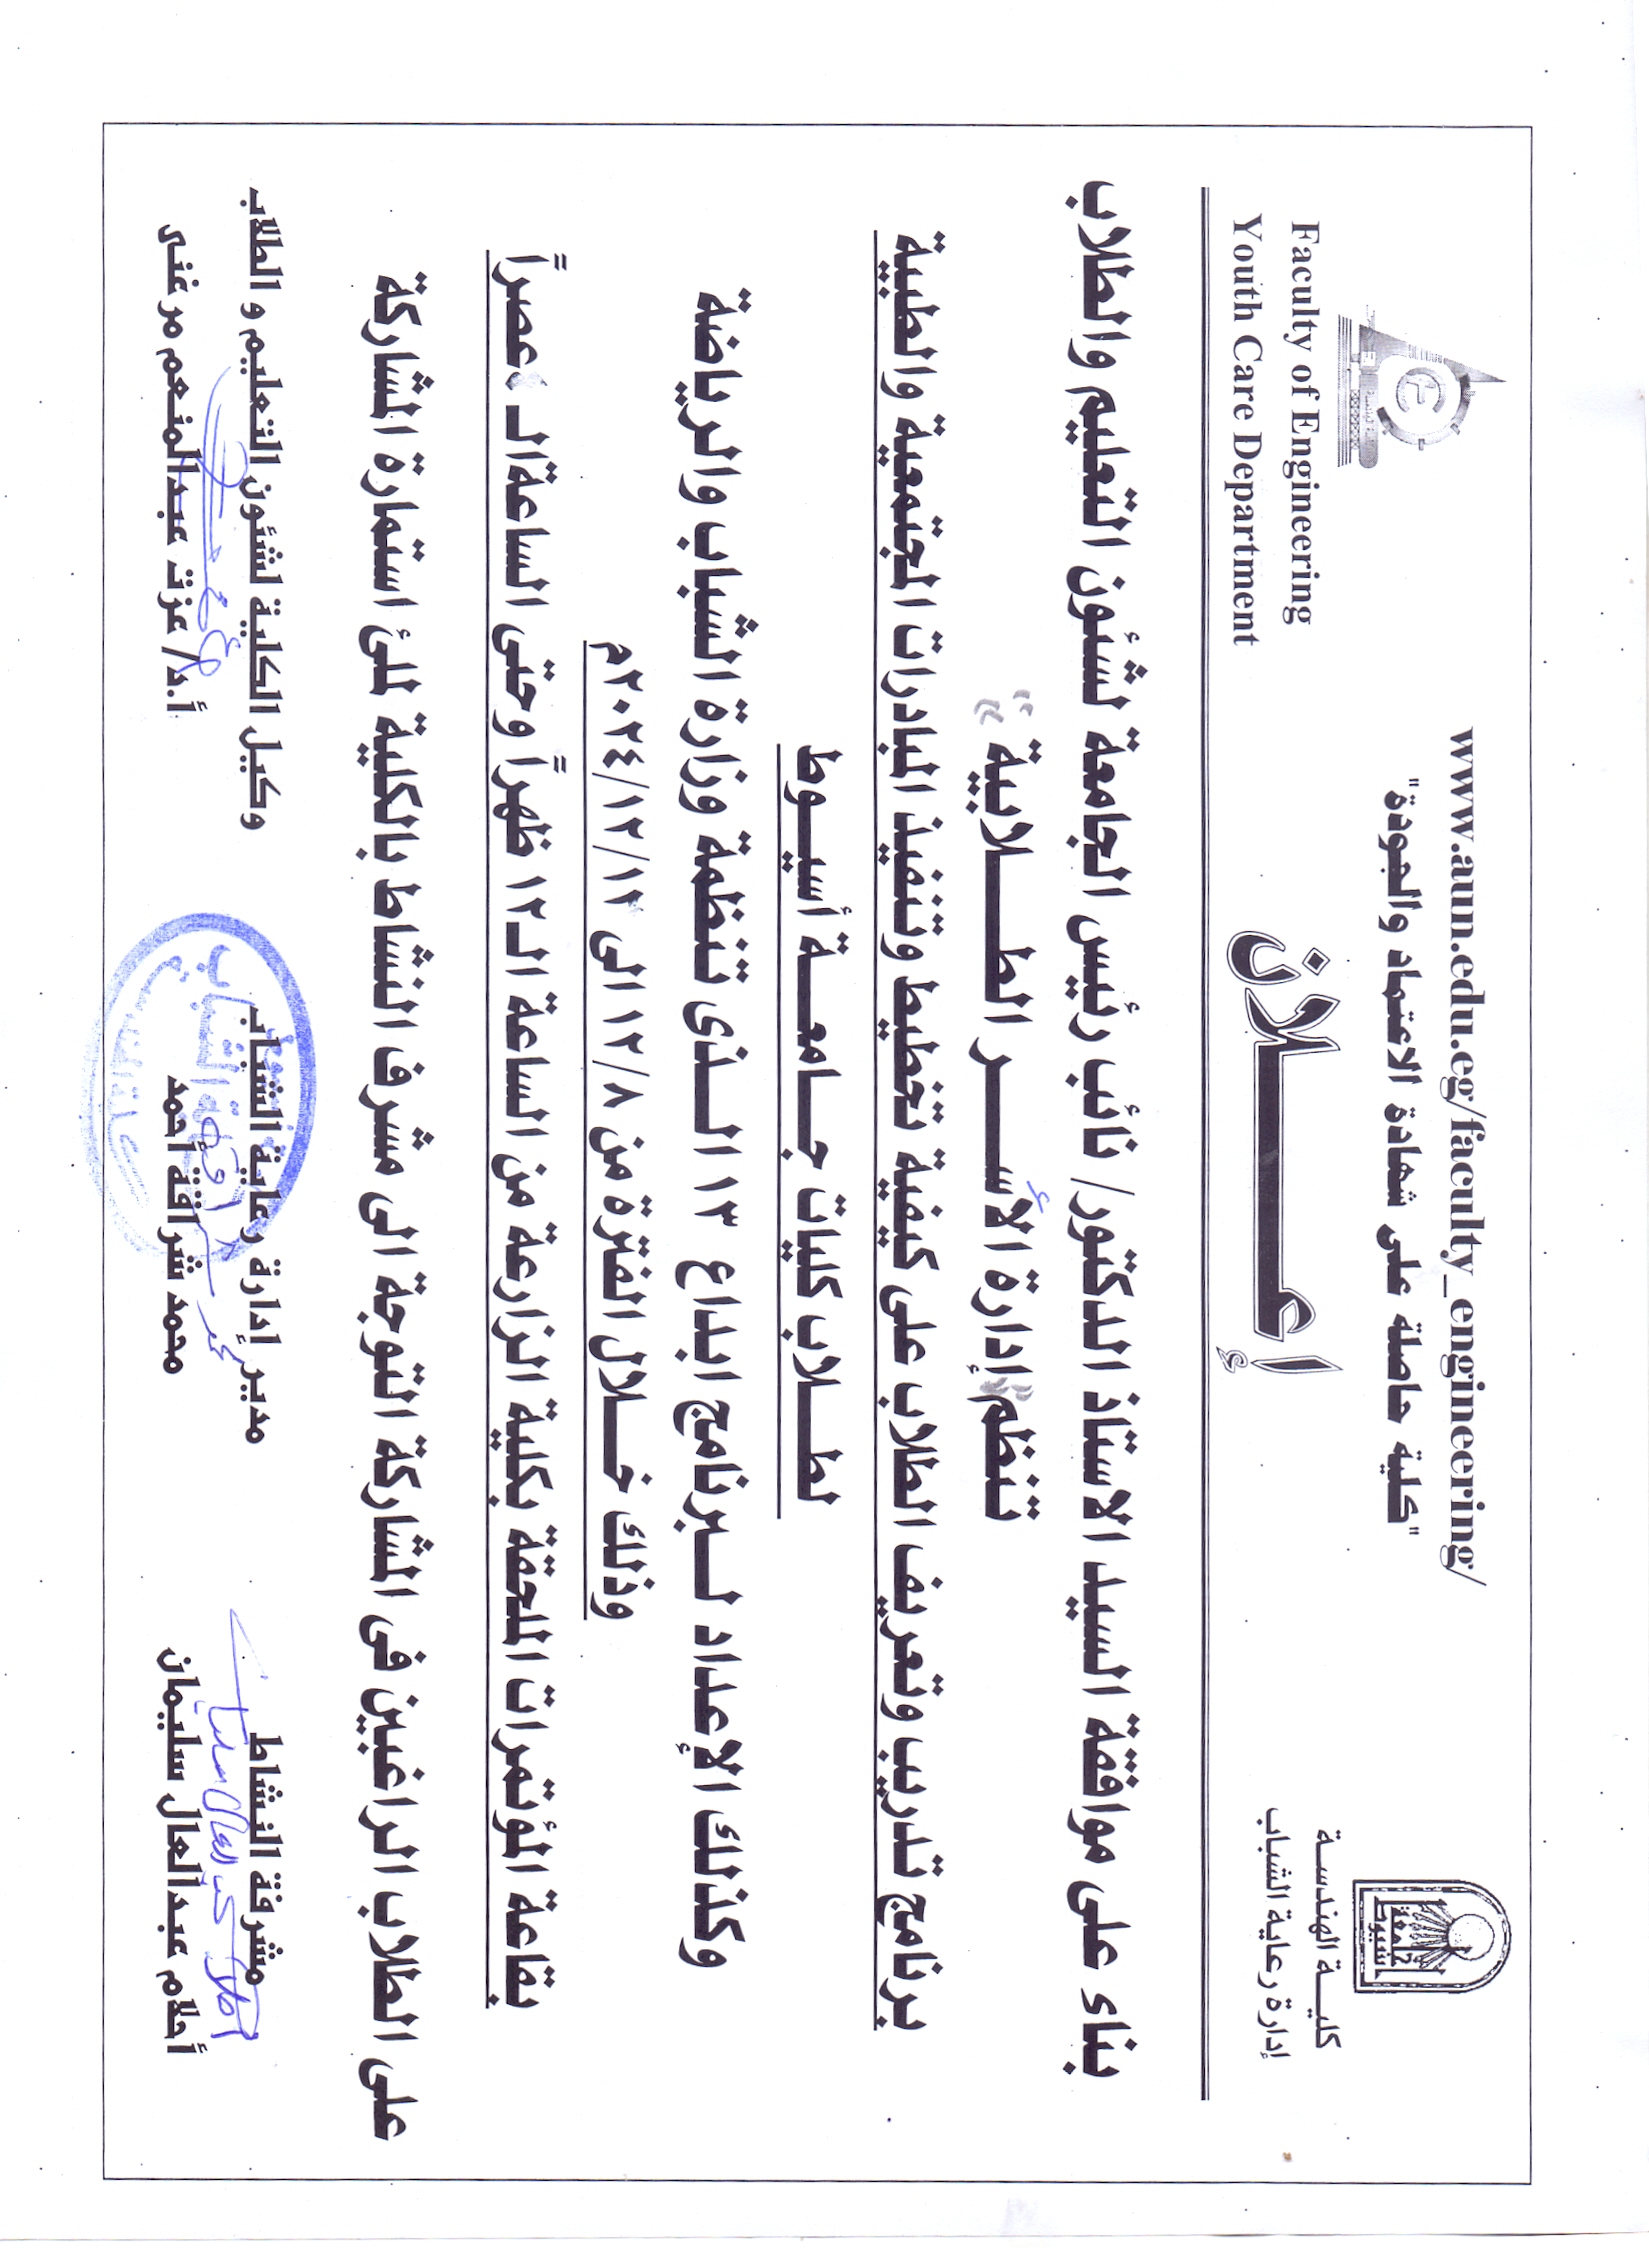 www.aun.edu.eg/faculty_engineering/
"كلية حاصلة على شهادة الاعتماد والجودة"
جامعة
اسيوط
Faculty of Engineering
Youth Care Department
كليـــة الهندســة
إدارة رعاية الشباب
أعـــــلان
بناء على موافقة السيد الاستاذ الدكتور/ نائب رئيس الجامعة لشئون التعليم والطلاب
تنظم "إدارة الأســـر الطـــلابية"
برنامج تدريب وتعريف الطلاب على كيفية تخطيط وتنفيذ المبادرات المجتمعية والطبية
لطـــلاب كليات جــامعـــة أسيــوط
وكذلك الإعداد لـبرنامج ابداع ١٣ الــذى تنظمة وزارة الشباب والرياضة
وذلك خـــلال الفترة من ١٢/٨ الى ٢٠٢٤/١٢/١٢م
بقاعة المؤتمرات الملحقة بكلية الزارعة من الساعة الـ١٢ ظهراً وحتى الساعةالـ ٤عصراً
على الطلاب الراغبين فى المشاركة التوجة الى مشرف النشاط بالكلية لملئ استمارة المشاركة
مشرفة النشاط
أحلام عبدالعال سليمان
أحلام عبد العال سليمان
مدير إدارة رعاية الشباب
محمد شرافة أحمد
وكيل الكلية لشئون التعليم و الطلاب
أ.د/ عزت عبدالمنعم مرغنى